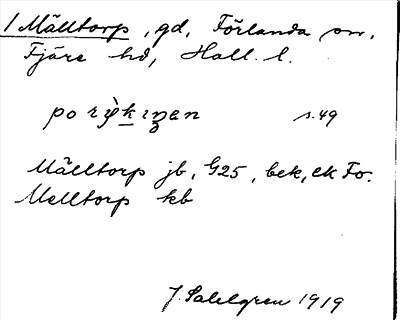 / Mälltorp, gd, Förlanda sn,
Fjäre hd, Hall. l.
s. 49
Mälltorp jb, G25, bek, ek Fo.
Melltorp kb
J. Sahlgren 1919